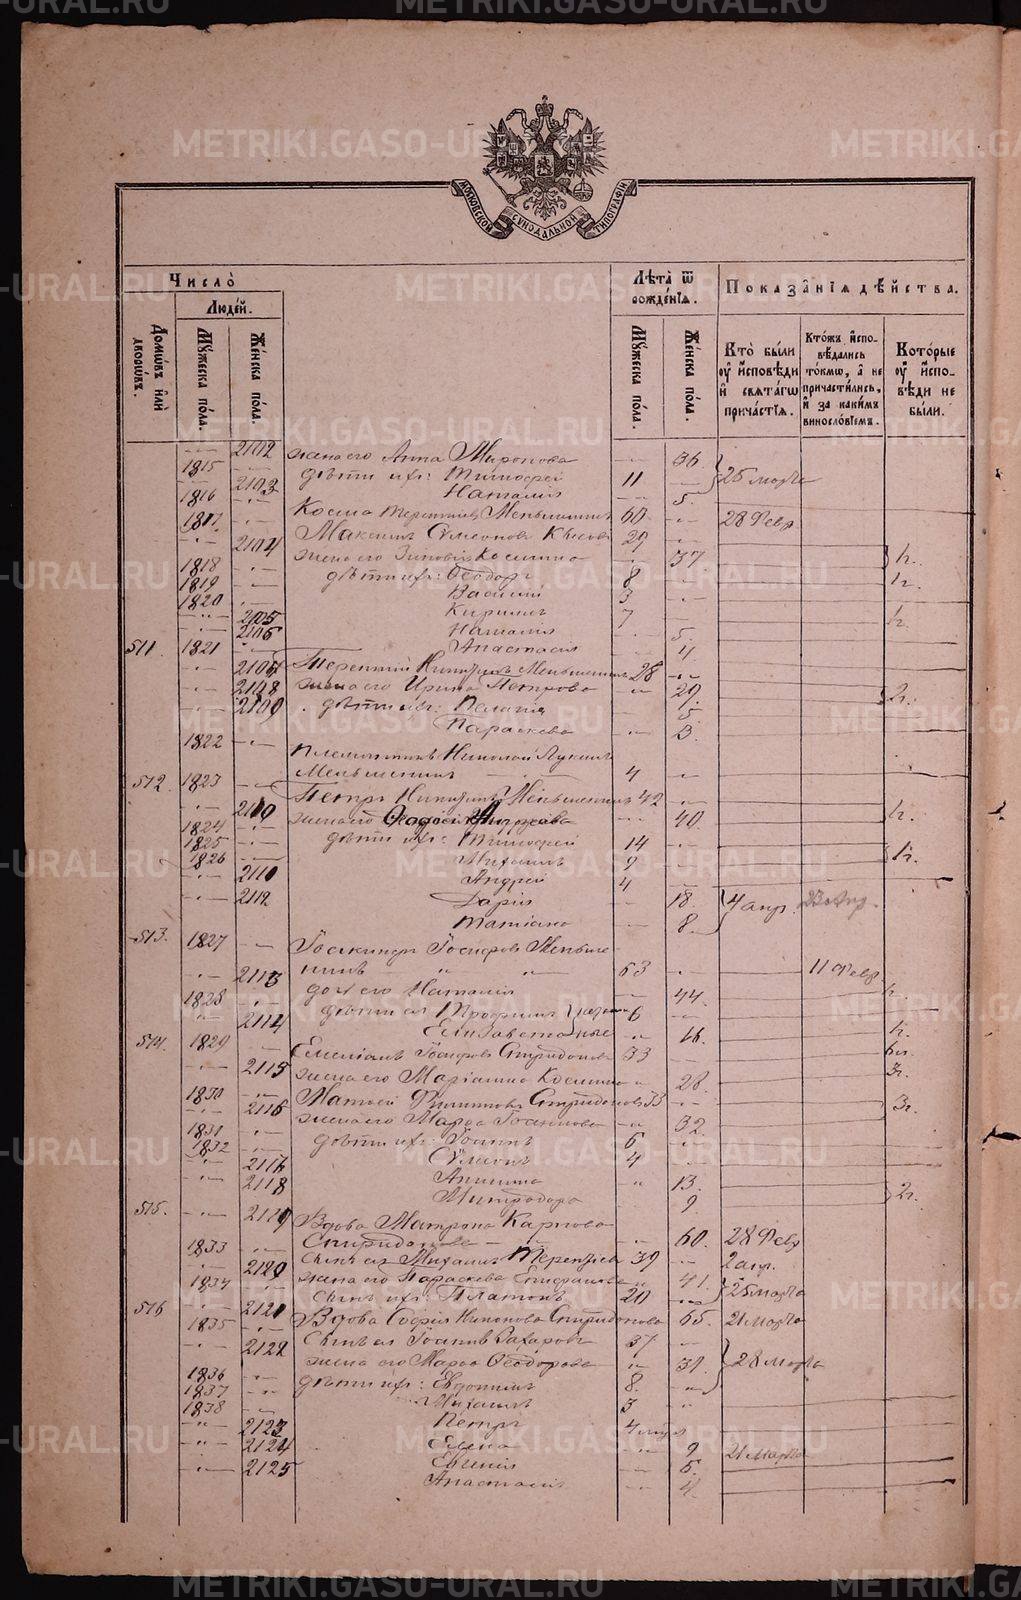 МОСКОВСКОЙ СѴНОДАЛЬНОЙ ТИПОГРАФІИ
Число̀
Людей.
Домѡвъ или дворѡвъ.
Мꙋжеска пола.
Женска пола.
Лѣта ѿ рожденїѧ.
Мꙋжеска пола.
Женска пола.
Показанїѧ дѣйства.
Кто были ᲂу исповѣди и свѧтагѡ причастїѧ.
Ктожъ исповѣдались токмѡ, а не причастились, и за какимъ винословїемъ.
Которые ᲂу исповѣди не были.
2102 жена его Анна Миронова 36.
1815 дѣти ихъ: Тимофей 11 25 марта
2103 Наталія 5.
1816 Косма Терентіевъ Меньшенинъ 60 28 Февр
1817 Максимъ Сѵмеоновъ 29
2104 жена его Зиновія Космина 37
1818 дѣти ихъ: Ѳеодоръ 8
1819 Василій 3
1820 Кириллъ 7
2105 Наталія 5.
2106 Анастасія 11
511 1821 Терентій Никитинъ Меньшенинъ 28
2107 жена его Ирина Петрова 29. 2г.
2108 дѣти ихъ: Пелагія 5
2109 Параскева 3.
1822 Племянникъ Николай Лукинъ
Меньшенинъ 4
512. 1823 Петръ Никитинъ Меньшенинъ 42
жена его 40.
1824 дѣти ихъ: Тимофей 14
1825 Михаилъ 9
1826 Андрей 4
2110 Дарія 18. 4 апр.
2112 Татіана 8.
513. 1827 Іоакимъ Іосифовъ Меньше
нинъ 63 11 Февр
2113 дочь его Наталія 44.
1828 дѣти ея Трофимъ 6
2114 Елизавета 16.
514. 1829 Емеліанъ Іосифовъ Спиридоновъ 33
2115 жена его Маріанна Космина 28. 3г.
1830 Матѳей Филипповъ Спиридоновъ 33
2116 жена его Марѳа Іоаннова 32. 3г.
1831 дѣти ихъ: Іоаннъ 6
1832 Сѵмеонъ 4
2117 Анисина 13.
2118 Митродора 9. 2г.
515. 2119 Вдова Матрона Карпова
Спиридонова 60. 28 Февр
1833 сынъ ея Михаилъ Терентіевъ 39 2 апр.
2120 жена его Параскева Епифанова 41. 25 марта
1834 сынъ ихъ Платонъ 20
516 2121 Вдова Софія Никонова Спиридонова 65. 21 марта
1835 сынъ ея Іоаннъ Захаровъ 37
2122 жена его Марѳа Ѳеодорова 31. 28 марта
1836 дѣти ихъ: Евдокимъ 8.
1837 Михаилъ 3
1838 Петръ
2123 Елена 9 21 марта
2124 Евгенія 6.
2125 Анастасія 4.
METRIKI.GASO-URAL.RU